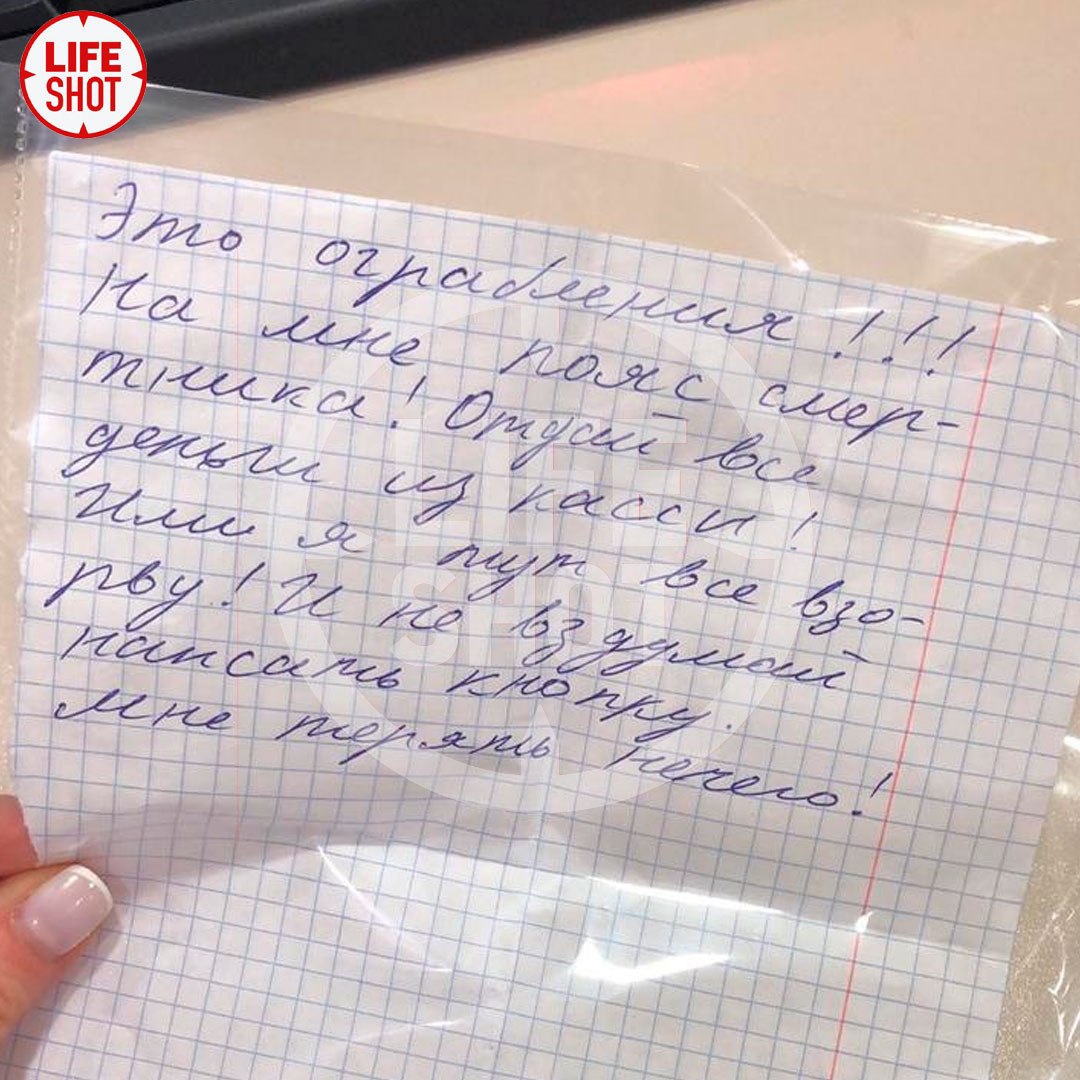 LIFE
SHOT
Это ограбления!!!
На мне пояс смер-
тника! Отдай все
деньги из касси!
Или я тут все взо-
рву! И не вздумай
нажсать кнопку.
мне терять нечего!
LIFE
SHOT